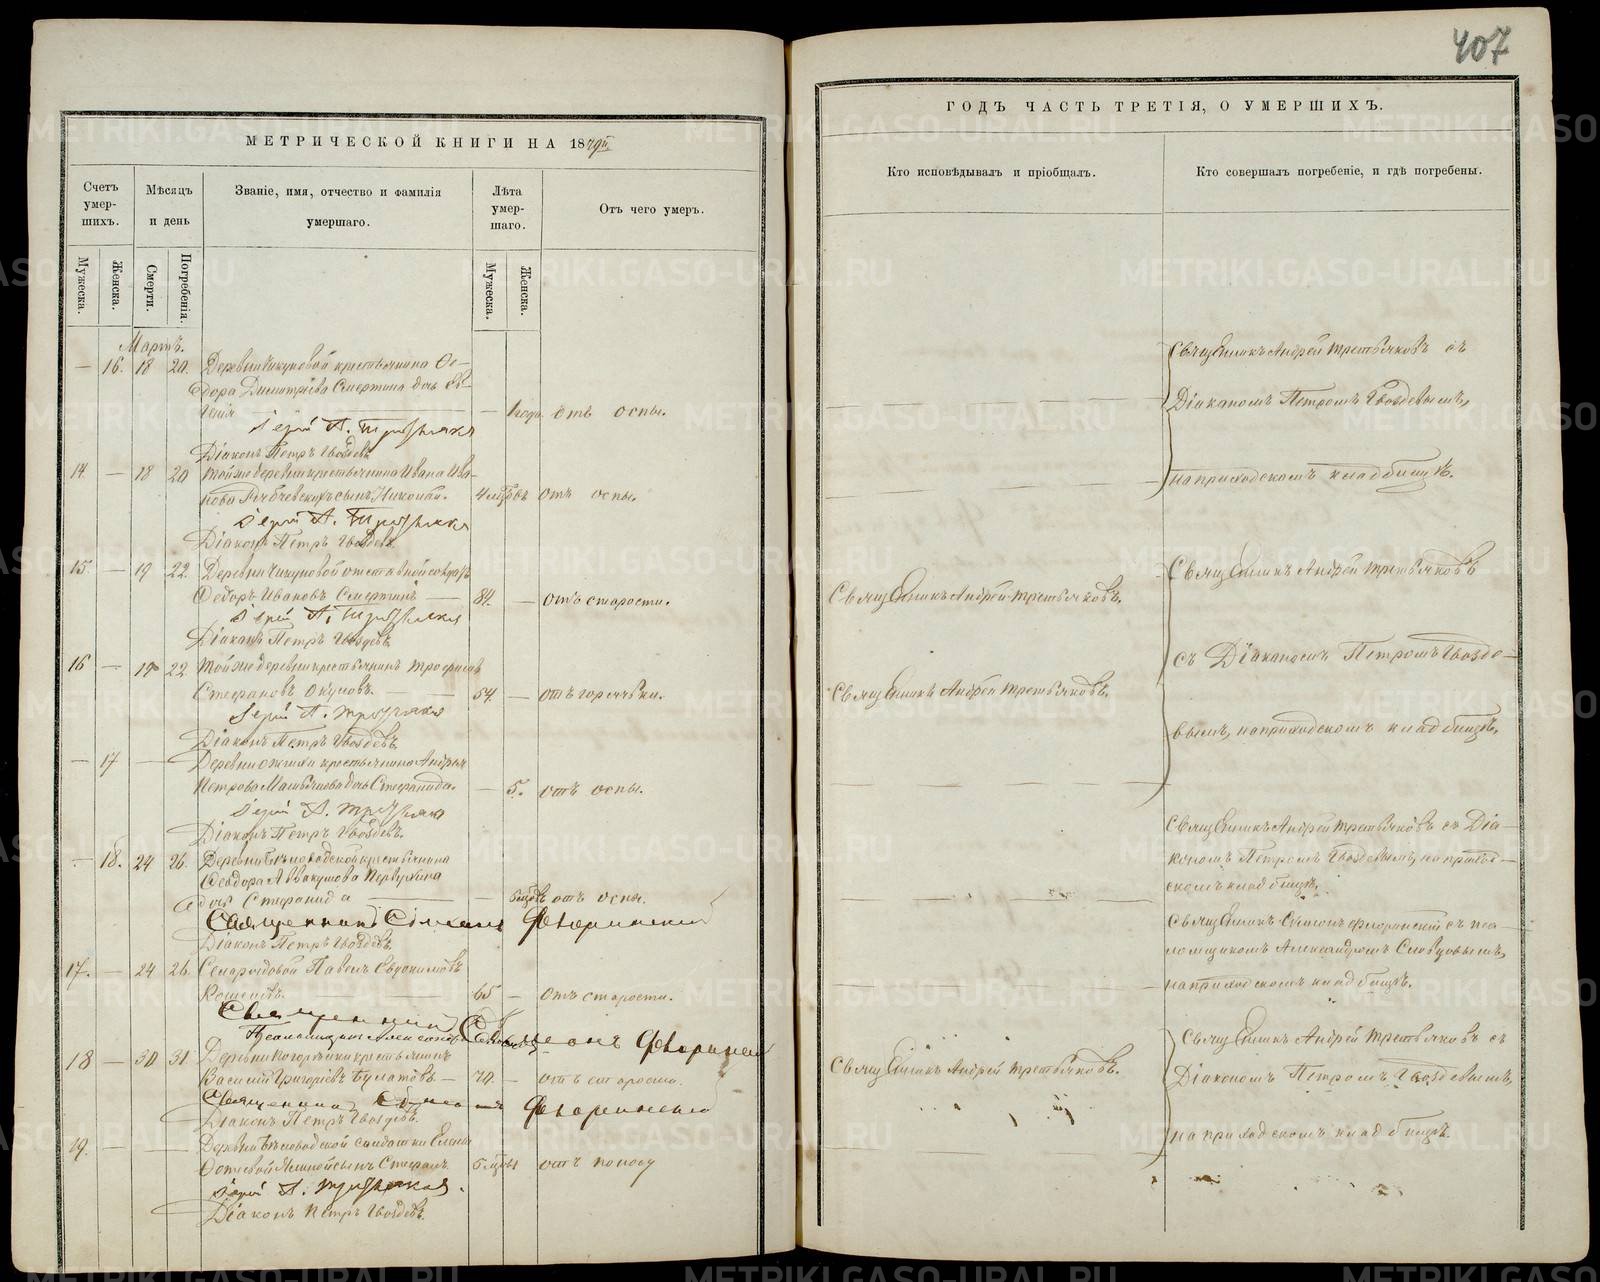 407
МЕТРИЧЕСКОЙ КНИГИ НА 1879й
ГОДЪ ЧАСТЬ ТРЕТІЯ, О УМЕРШИХЪ.
Счетъ умер-шихъ.
Мужеска.
Женска.
Мѣсяцъ и день
Смерти.
Погребенія.
Званіе, имя, отчество и фамилія умершаго.
Лѣта умер-шаго.
Мужеска.
Женска.
Отъ чего умеръ.
Кто исповѣдывалъ и пріобщалъ.
Кто совершалъ погребеніе, и гдѣ погребены.
Мартъ.
— 16. 18 20. Деревни Чикуновой крестьянина Ѳе-
дора Димитріева Смертина дочь Ев-
генія — 1 года отъ оспы.
Іерей А. Третьяковъ
Діаконъ Петръ Гвоздевъ
Священникъ Андрей Третьяковъ съ
Діакономъ Петромъ Гвоздевымъ,
на приходскомъ кладбищѣ.
14. — 18 20 Той же деревни крестьянина Ивана Ива-
нова сынъ Николай. 4 мѣс отъ оспы.
Іерей А. Третьяковъ
Діаконъ Петръ Гвоздевъ
15. — 19 22. Деревни Чикуновой отставной солдатъ
Ѳедоръ Ивановъ Смертинъ — 84. — отъ старости.
Іерей А. Третьяковъ
Діаконъ Петръ Гвоздевъ
Священникъ Андрей Третьяковъ.
Священникъ Андрей Третьяковъ
съ Діакономъ Петромъ Гвозде-
вымъ, на приходскомъ кладбищѣ.
16 — 19 22 Той же деревни крестьянинъ Трофимъ
Стефановъ Окуловъ. — 54. — отъ горячки.
Іерей А. Третьяковъ
Діаконъ Петръ Гвоздевъ
Священникъ Андрей Третьяковъ.
— 17 — Деревни крестьянина Андрея
Петрова дочь Степанида. — 5. отъ оспы.
Іерей А. Третьяковъ
Діаконъ Петръ Гвоздевъ.
— 18. 24 26. Деревни Бѣловодской крестьянина
Ѳеодора Аввакумова Первухина
дочь Степанида — отъ оспы.
Священникъ Симеонъ Флоринскій
Діаконъ Петръ Гвоздевъ
Священникъ Андрей Третьяковъ съ Діа-
кономъ Петромъ Гвоздевымъ, на приход-
скомъ кладбищѣ.
17. — 24 26. Павелъ Евдокимовъ
65 — отъ старости.
Священникъ Симеонъ Флоринскій
Псаломщикъ Александръ Словцовъ
Священникъ Симеонъ Флоринскій съ пса-
ломщикомъ Александромъ Словцовымъ,
на приходскомъ кладбищѣ.
18 — 30 31. Деревни крестьянинъ
Василій Григорьевъ Булатовъ — 74. — отъ старости.
Священникъ Симеонъ Флоринскій
Діаконъ Петръ Гвоздевъ.
Священникъ Андрей Третьяковъ.
Священникъ Андрей Третьяковъ съ
Діакономъ Петромъ Гвоздевымъ,
на приходскомъ кладбищѣ.
19. — — Деревни Бѣловодской солдатки Елены
сынъ Стефанъ. отъ поносу
Іерей А. Третьяковъ.
Діаконъ Петръ Гвоздевъ.
METRIKI.GASO-URAL.RU